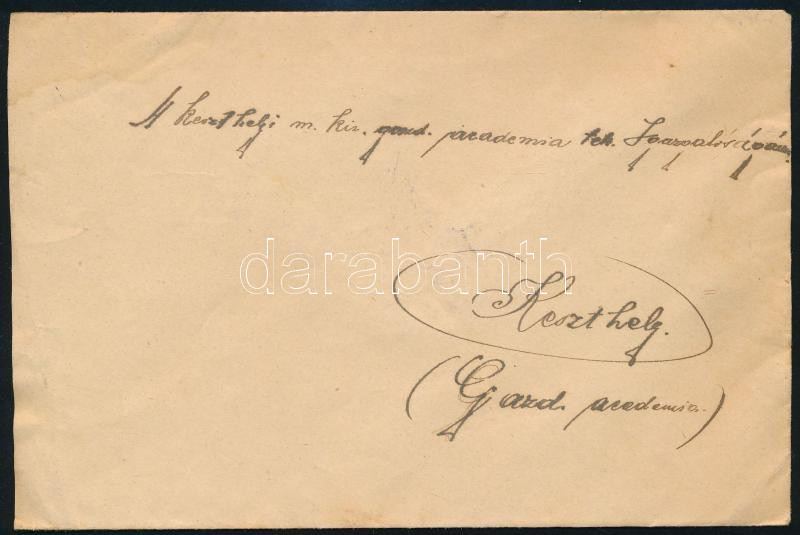 A keszthelyi m. kir. gazd. academia tek. Igazgatóságának
darabanth
Keszthely.
(Gazd. academia.)